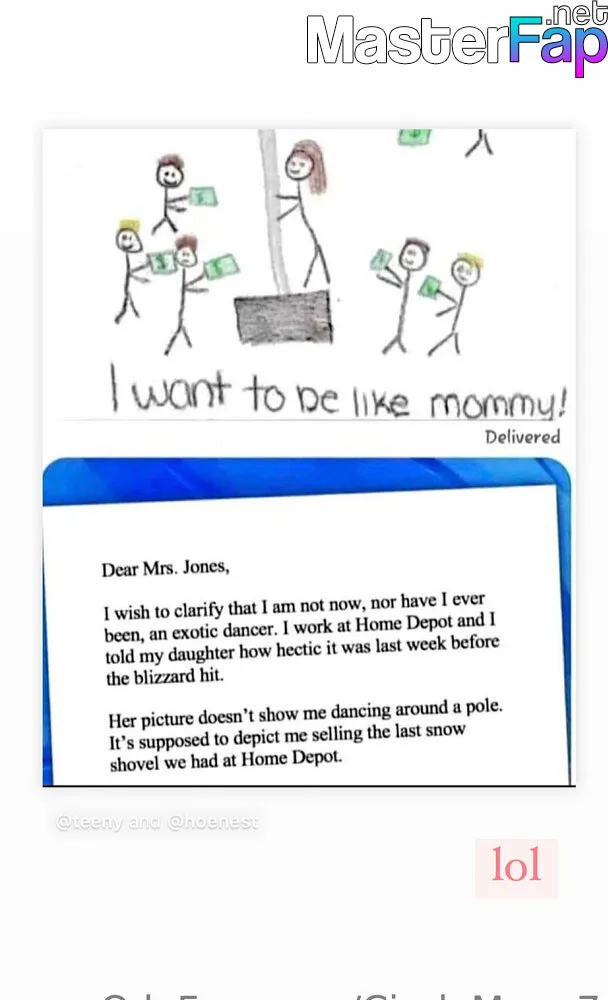 .net
MasterFap
I want to be like mommy!
Delivered
Dear Mrs. Jones,
I wish to clarify that I am not now, nor have I ever
been, an exotic dancer. I work at Home Depot and I
told my daughter how hectic it was last week before
the blizzard hit.
Her picture doesn't show me dancing around a pole.
It's supposed to depict me selling the last snow
shovel we had at Home Depot.
@teeny and @hoenest
lol